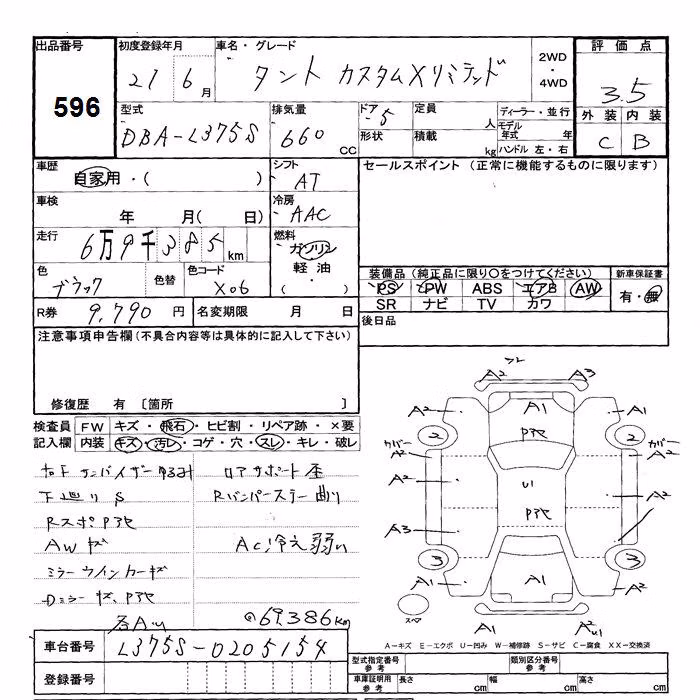 出品番号 初度登録年月 車名・グレード 評価点
596 21 6月 タント カスタムXリミテッド 2WD・4WD 3.5
型式 排気量 ドア 定員 人 ディーラー・並行 外装 内装
DBA-L375S 660 CC 5 形状 積載 kg モデル年式 年 C B
ハンドル 左・右
車歴 シフト セールスポイント (正常に機能するものに限ります)
自家用・( ) AT
車検 冷房
年 月( 日) AAC
走行 燃料
6万9千385km ガソリン
軽油
・( )
色 色替 色コード
ブラック X06
装備品 (純正品に限り○をつけてください) 新車保証書
PS PW ABS エアB AW 有・無
SR ナビ TV カワ
R券 9,790円 名変期限 月 日 後日品
注意事項申告欄(不具合内容等は具体的に記入して下さい)
修復歴 有 〔箇所 〕
検査員 FW キズ・飛石・ヒビ割・リペア跡・×要
記入欄 内装 キズ・汚レ・コゲ・穴・スレ・キレ・破レ
下廻りS Rバンパーステー曲り
RスポPアセ
AWキズ AC冷え弱い
ミラーウインカーキズ
Dミラーキズ、Pアセ
各AU @69,386km
A2 A3
A2 A1 A1
Pアセ
2 2
カバー A2 カバー A2
A2 U1 A2
Pアセ
A3
3 3
A1 A1 A2
スペア
A1 A2 U1
A-キズ E-エクボ U-凹み W-補修跡 S-サビ C-腐食 XX-交換済
車台番号 L375S-0205154
登録番号
型式指定番号 参考 類別区分番号 参考
車庫証明用 参考 長さ cm 幅 cm 高さ cm